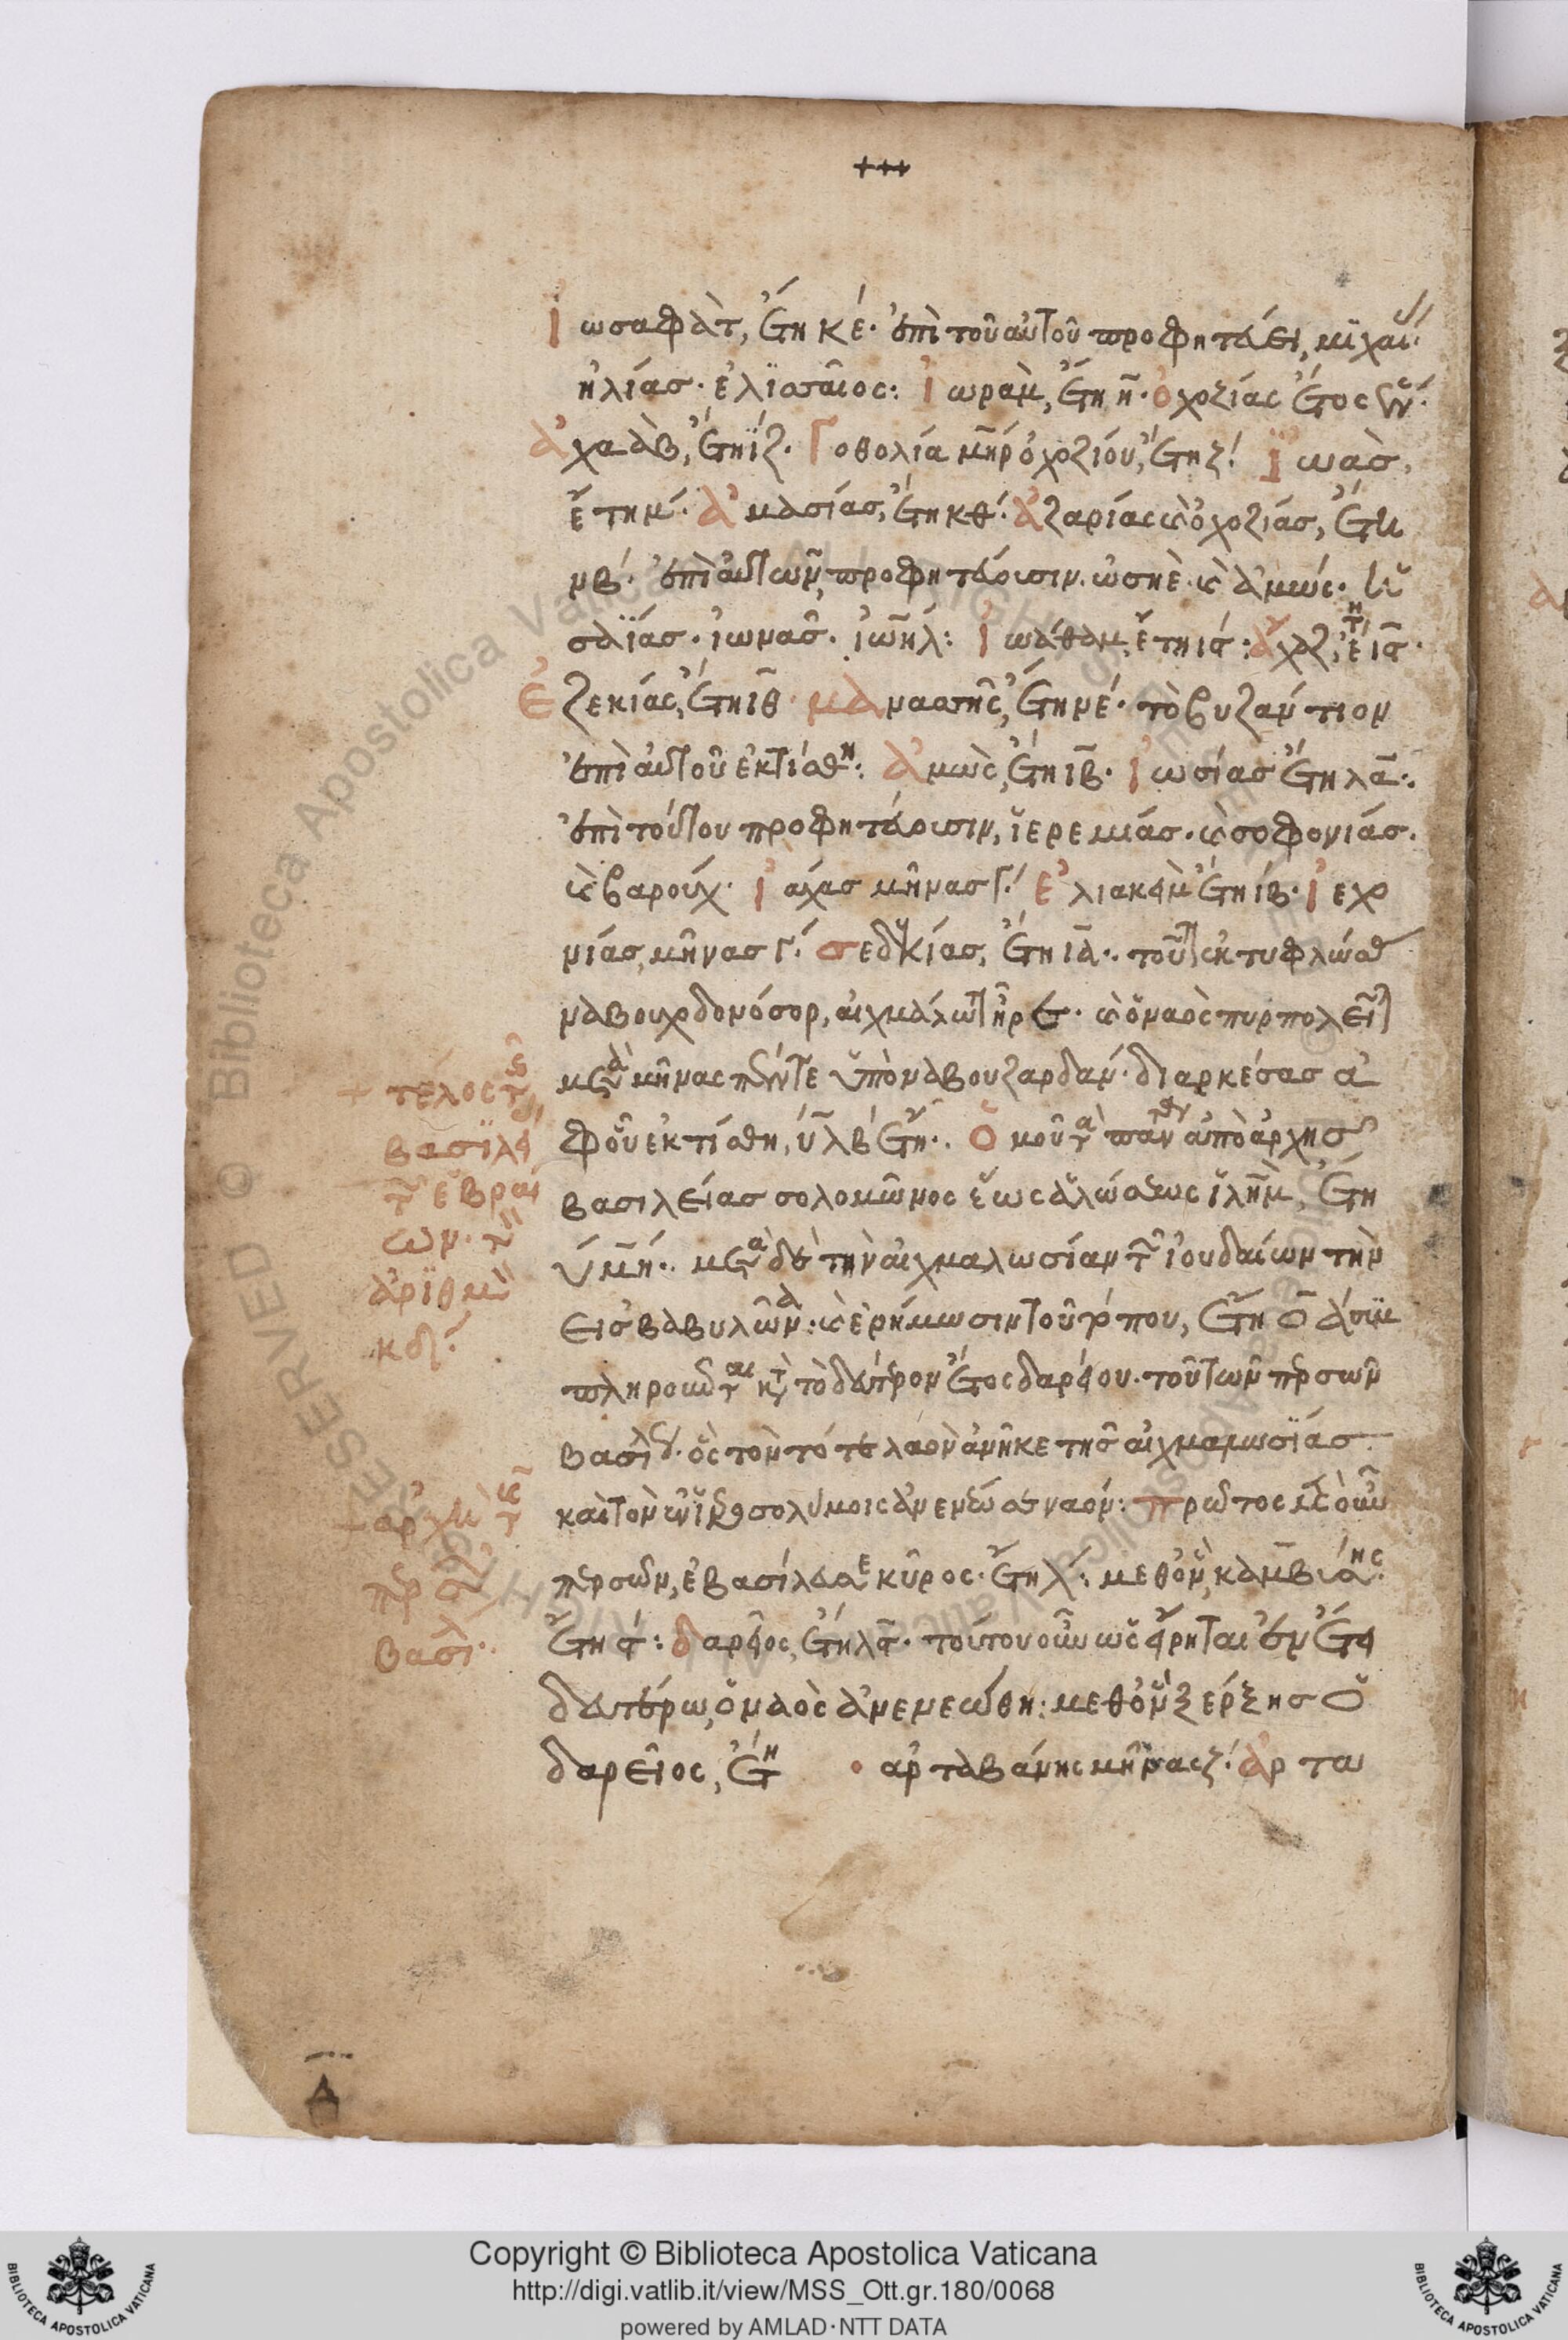 +++
Ἰωσαφὰτ, ἔτη κε´. ἐπὶ τοῦ αὐτοῦ προφητεύει, μιχαί.
ἠλίας. ἐλϊσσαῖος: Ἰωρὰμ, ἔτη η. ὀχοζίας ἔτος
ἀχαὰβ, ἔτη ιζ. Γοθολία μηρ ὀχοζίου, ἔτη ζ´ Ἰωὰς,
ἔτη μ´. ἀμασίας, ἔτη κθ´. ἀζαρίας κ ὀχοζιάς, ἔτη
νβ´. ἐπὶ αὐτῶν προφητεύουσιν. ὠσηὲ κ ἀμώς.
σαΐας. ἰωνᾶς. ἰωήλ: Ἰωάθαμ, ἔτη ις: ἄχαζ, ἔτη ις.
Ἐζεκίας, ἔτη ιθ. μανασσῆς, ἔτη νε´. τὸ βυζάντιον
ἐπὶ αὐτοῦ ἐκτίσθη: ἀμὼς, ἔτη ιβ. Ἰωσίας ἔτη λα.
ἐπὶ τούτου προφητεύουσιν, ἱερεμιάς. κ σοφονιάς.
κ βαρούχ. Ἰαχας μῆνας γ´. Ἐλιακεὶμ ἔτη ιβ. Ἰεχο
νίας, μῆνας γ´. σεδεκίας, ἔτη ια. τοῦτ ἐκτυφλώσ
ναβουχοδονόσορ, αἰχμάλωτ ἦρε. κ ὁ ναὸς πυρπολεῖτ
μετὰ μῆνας πέντε ὑπὸ ναβουζαρδάν. διαρκέσας ἀ
φ οὗ ἐκτίσθη, υλβ ἔτη. Ὁμοῦ τ πᾶν ἀπὸ ἀρχῆς
βασιλείας σολομῶνος ἕως ἁλώσεως ἱλημ, ἔτη
υμη. μετὰ δὲ τὴν αἰχμαλωσίαν τ ἰουδαίων τὴν
εἰς βαβυλῶνα: κ ἐρήμωσιν τοῦ τόπου, ἔτη ο
πληροῦται κτ τὸ δεύτερον ἔτος δαρείου. τοῦ τῶν περσῶν
βασιλέ. ὃς τὸν τότε λαὸν ἀνῆκε τῆς αἰχμαλωσϊάς
καὶ τὸν ἐν ἱεροσολύμοις ἀνενεώσε ναόν: πρῶτος μὲν οὖν
περσῶν, ἐβασίλευσε κῦρος. ἔτη λ´. μεθ ὃν, καμβύσης.
ἔτη : δαρεῖος, ἔτη λ. τούτου οὖν ὡς εἴρηται ἐν ἔτει
δευτέρω, ὁ ναὸς ἀνενεώθη: μεθ ὃν ξέρξης ὁ
δαρεῖος, ἔτη . ἀρταβάνης μῆνας ζ´. ἀρτα
+ τέλος τ
βασϊλε
τ ἑβραί
ων. τ
ἀρϊθμῶ
κδ´.
+ ἀρχὴ τ
περσ
βασι.
Δ
Copyright © Biblioteca Apostolica Vaticana
http://digi.vatlib.it/view/MSS_Ott.gr.180/0068
powered by AMLAD·NTT DATA
BIBLIOTECA APOSTOLICA VATICANA
BIBLIOTECA APOSTOLICA VATICANA